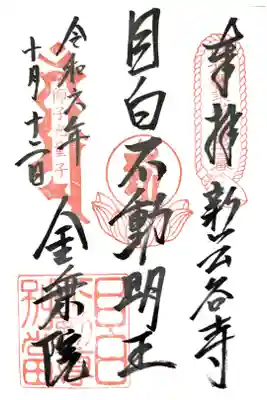 奉拝 新長谷寺
目白不動明王
金乗院
令和六年
十月十二日